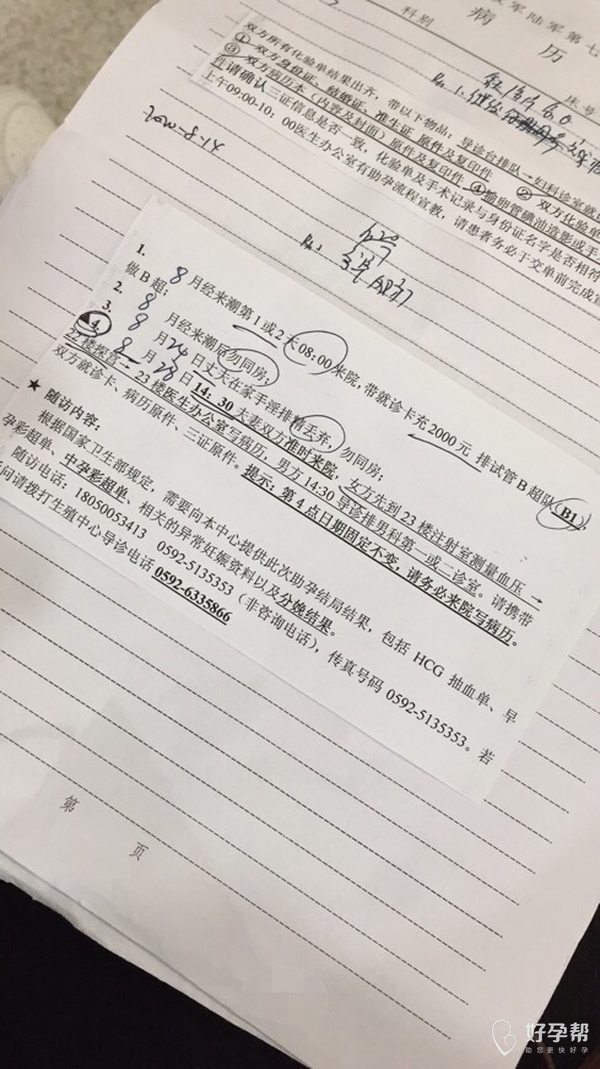 军陆军第七
科别
床号
病 历
双方所有化验单结果出齐,带以下物品:导诊台排队→妇科诊室就
① 双方身份证、结婚证、准生证 原件及复印件 ② 双方化验单
③ 双方病历本(内容及封面)原件及复印件 ④输卵管碘油造影或手
件请确认三证信息是否一致,化验单及手术记录与身份证名字是否相符
上午09:00-10:00医生办公室有助孕流程宣教,请患者务必于交单前完成宣
1. 8 月经来潮第 1 或 2 天 08:00 来院,带就诊卡充 2000 元 排试管 B 超队(B1),
做 B 超;
2. 8 月经来潮后勿同房;
3. 8 月 24 日丈夫在家手淫排精丢弃,勿同房;
4. 8 月 28 日 14:30 夫妻双方准时来院,女方先到 23 楼注射室测量血压→
22 楼探宫→23 楼医生办公室写病历,男方 14:30 导诊排男科第一或二诊室。请携带
双方就诊卡、病历原件、三证原件。提示:第 4 点日期固定不变,请务必来院写病历。
★ 随访内容:
根据国家卫生部规定,需要向本中心提供此次助孕结局结果,包括 HCG 抽血单、早
孕彩超单、中孕彩超单、相关的异常妊娠资料以及分娩结果。
随访电话:18050053413 0592-5135353(非咨询电话),传真号码 0592-5135353。若
问请拨打生殖中心导诊电话 0592-6335866
第 页
好孕帮
助您更快好孕